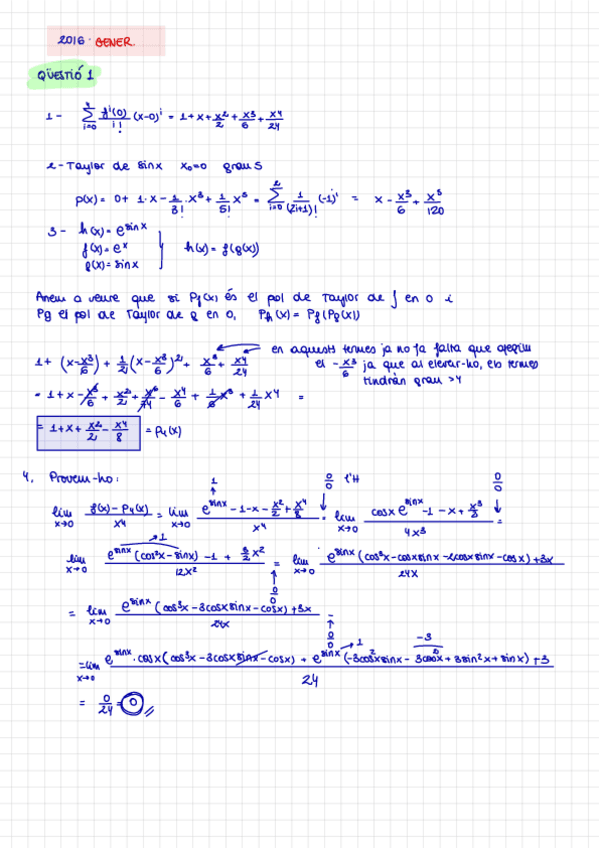 2016. GENER.
QÜESTIÓ 1
1- \sum_{i=0}^{4} \frac{f^i(0)}{i!} (x-0)^i = 1+x+\frac{x^2}{2}+\frac{x^3}{6}+\frac{x^4}{24}
2- Taylor de sinx x_0=0 grau 5
p(x) = 0+ 1·x - \frac{1}{3!}·x^3 + \frac{1}{5!}x^5 = \sum_{i=0}^{2} \frac{1}{(2i+1)!} (-1)^i = x - \frac{x^3}{6} + \frac{x^5}{120}
3- h(x) = e^{sinx}
f(x) = e^x } h(x) = f(g(x))
g(x) = sinx
Anem a veure que si Pf(x) és el pol de Taylor de f en 0 i
Pg el pol de Taylor de g en 0, Ph(x) = Pf(Pg(x))
1+ (x-\frac{x^3}{6}) + \frac{1}{2}(x-\frac{x^3}{6})^2 + \frac{x^3}{6} + \frac{x^4}{24} en aquests termes ja no fa falta que afegim
el -\frac{x^3}{6} ja que al elevar-ho, els termes
tindràn grau >4
= 1+x-\frac{x^3}{6} + \frac{x^2}{2} + \frac{x^6}{74} - \frac{x^4}{6} + \frac{1}{6}x^3 + \frac{1}{24}x^4 =
= 1+x+\frac{x^2}{2}-\frac{x^4}{8} = P_4(x)
4. Provem-ho: 1 \frac{0}{0} l'H \frac{0}{0}
lim_{x→0} \frac{f(x)-P_4(x)}{x^4} = lim_{x→0} \frac{e^{sinx}-1-x-\frac{x^2}{2}+\frac{x^4}{8}}{x^4} = lim_{x→0} \frac{cosx e^{sinx}-1-x+\frac{x^3}{2}}{4x^3} =
lim_{x→0} \frac{e^{sinx}(cos^2x-sinx)-1+\frac{3}{2}x^2}{12x^2} = lim_{x→0} \frac{e^{sinx}(cos^3x-cosxsinx-2cosxsinx-cosx)+3x}{24x}
= lim_{x→0} \frac{e^{sinx}(cos^3x-3cosxsinx-cosx)+3x}{24x} = \frac{0}{0}
= lim_{x→0} \frac{e^{sinx}·cosx(cos^3x-3cosxsinx-cosx)+e^{sinx}(-3cos^2xsinx-3cos^2x+3sin^2x+sinx)+3}{24}
= \frac{0}{24} = 0